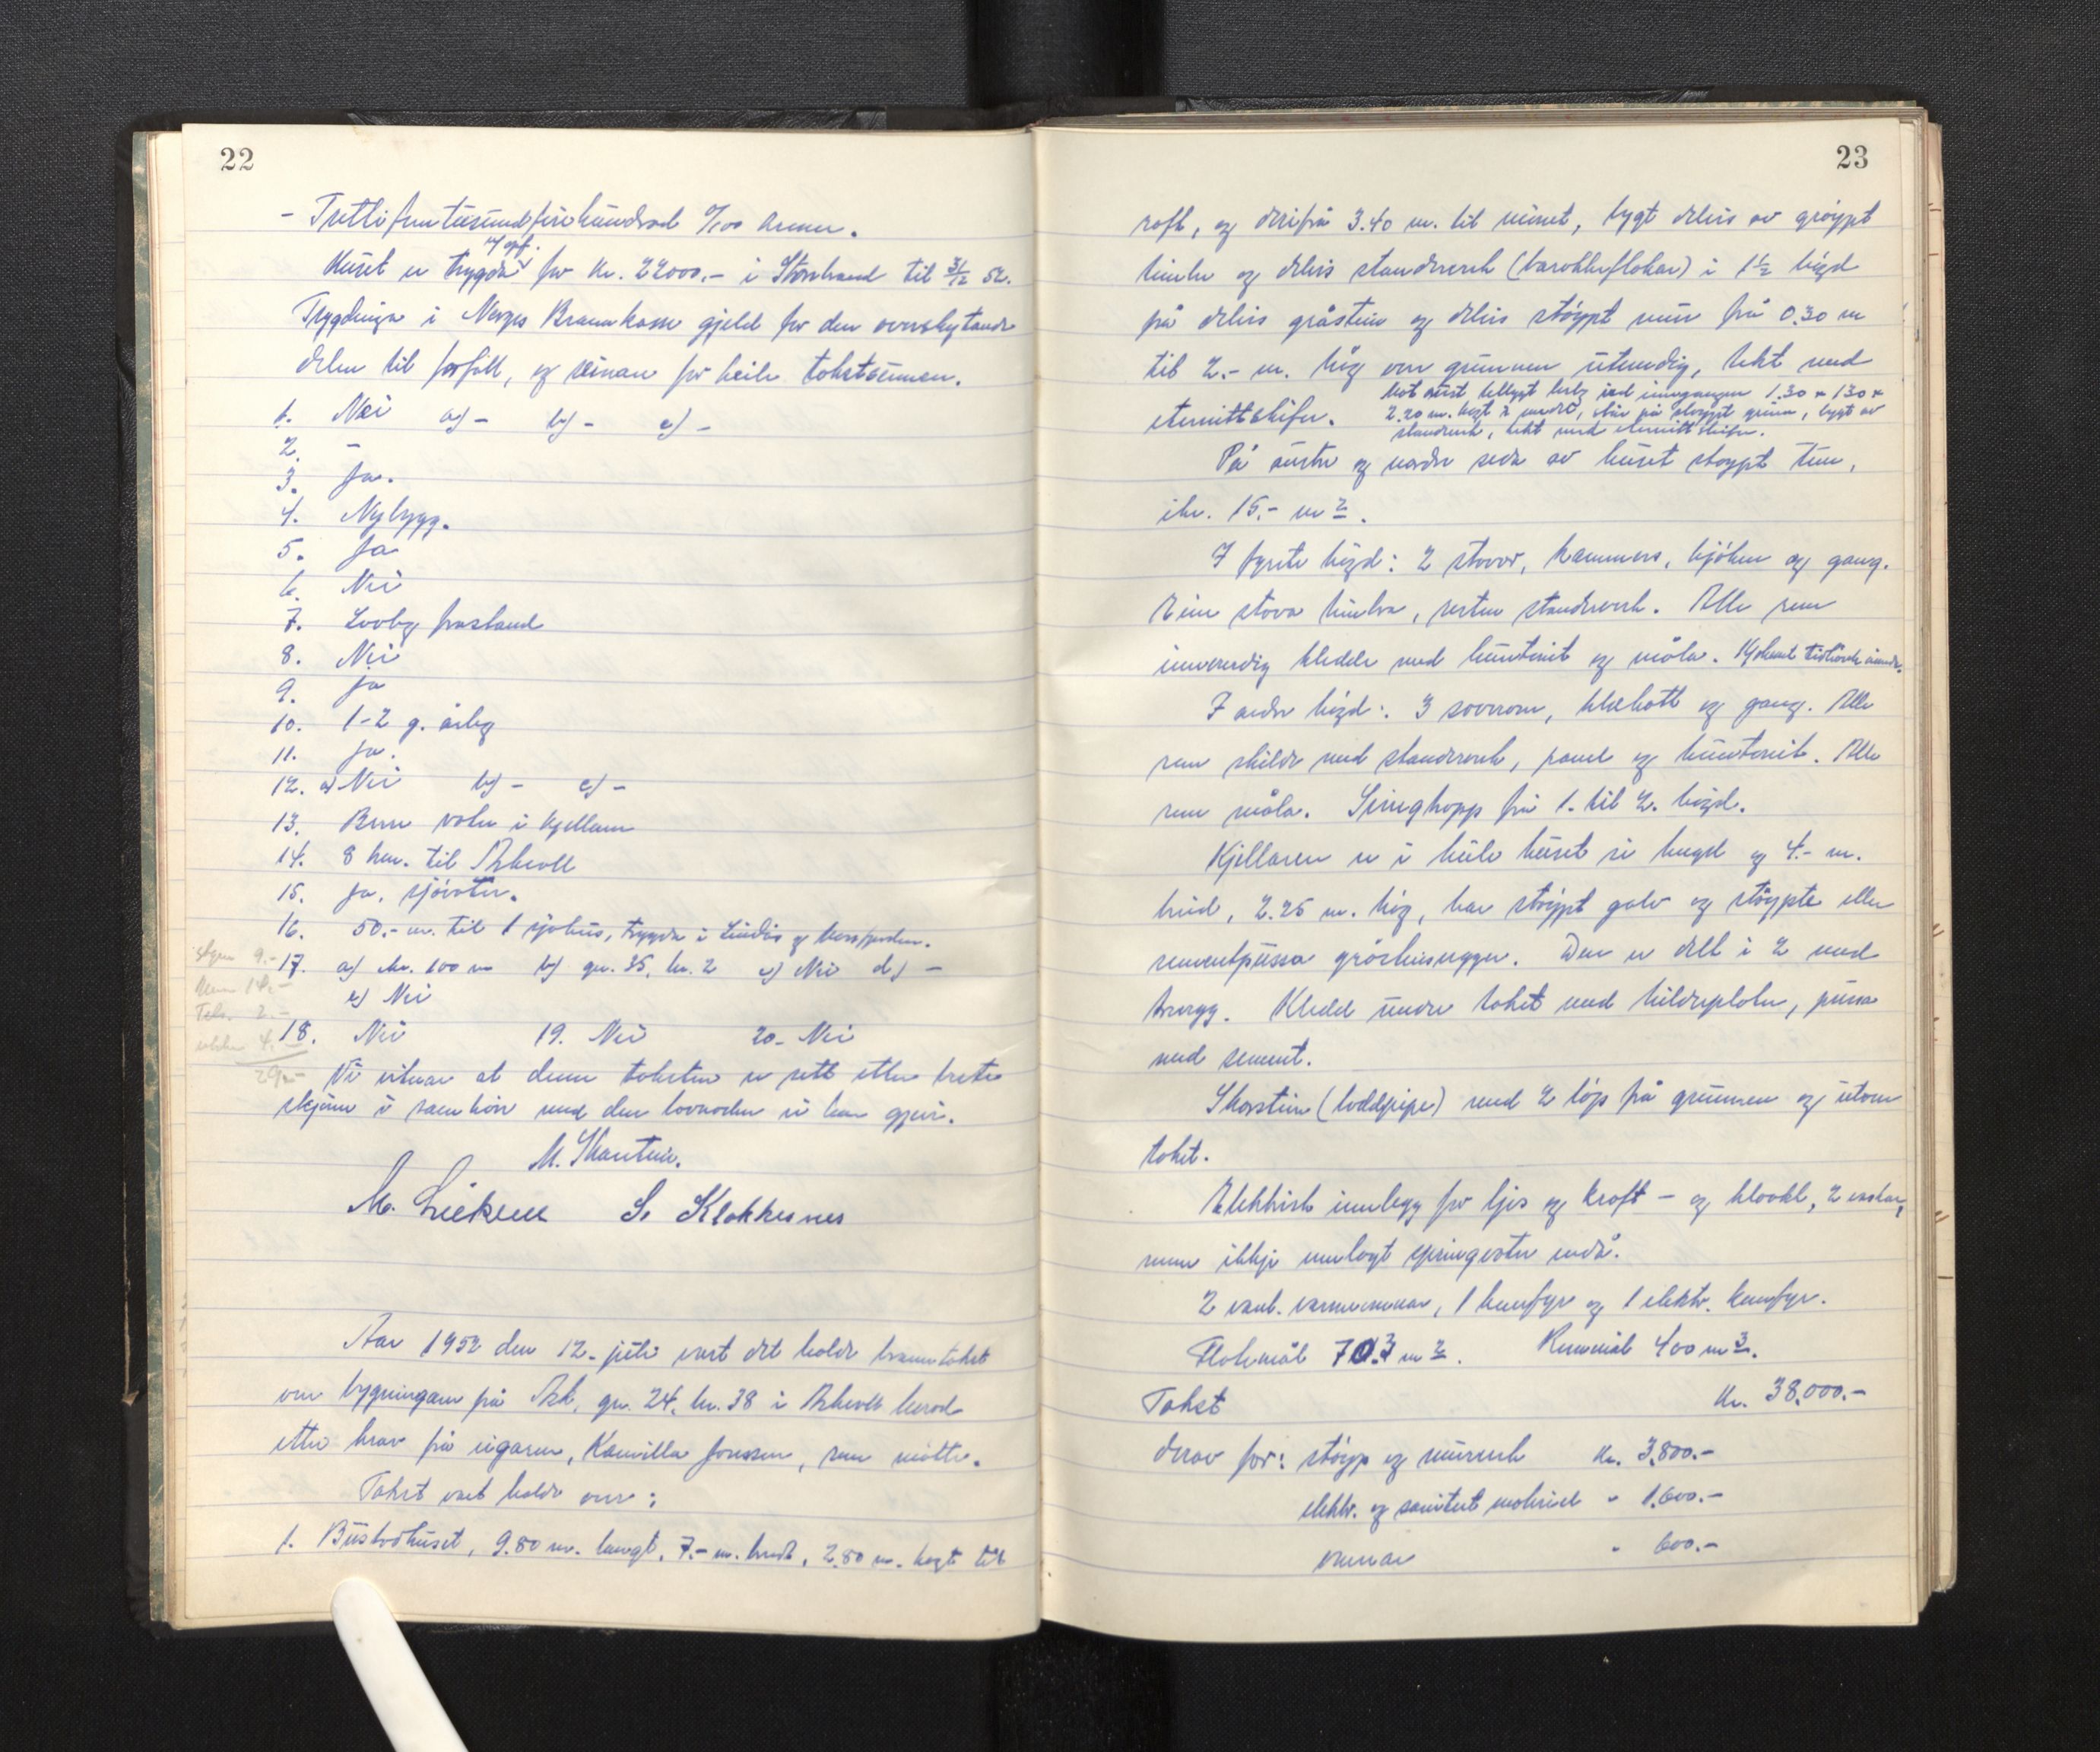 22
- Trettifemtusundfirehundrad 0/100 kroner.
Huset er trygda for kr. 22000.- i Storebrand til 3/12 52.
Trygdinga i Norges Brannkasse gjeld for den overskytande
delen til forfall, og seinare for heile takstsummen.
1. Nei a) - b) - c) -
2. -
3. Ja.
4. Nybygg.
5. Ja
6. Nei
7. Lovleg frastand
8. Nei
9. Ja
10. 1-2 g. årleg
11. Ja.
12. a) Nei b) - c) -
13. Berre veden i kjellaren
14. 8 km. til Askvoll
15. Ja, sjøvatn.
16. 50.- m. til 1 sjøhus, trygda i
17. a) ikr. 100 m b) gn. 35, bn. 2 c) Nei d) -
e) Nei
9.-
14.-
2.-
4.-
29.-
18. Nei 19. Nei 20. Nei
Vi vitnar at denne taksten er sett etter beste
skjønn i samhøve med den lovnaden vi har gjeve.
M.
M. S. Klokkernes
Aar 1952 den 12. juli vart det halde branntakst
over bygningane på Ask, gn. 24, bn. 38 i Askvoll herad
etter krav frå eigaren, Kamilla Jonassen, som møtte.
Takst vart halde over:
1. Bustadhuset, 9.80 m. langt, 7.- m. breidt, 2.80 m. høgt til
23
raft, og derifrå 3.40 m. til mønet, bygt delvis av grøypt
timber og delvis standverk (barakkeflakar) i 1½ høgd
på delvis gråstein og delvis støypt mur frå 0.30 m
til 2.- m. høg over grunnen utvendig, tekt med
eternittskifer. Mot aust tilbygt bislag ved inngangen 1.30 x 1.30 x
2.20 m. høgt i møndre, står på støypt grunn, bygt av
standverk, tekt med eternittskifer.
På austre og nordre sida av huset støypt tun,
ikr. 15.- m².
I fyrste høgd: 2 stover, kammers, kjøken og gang.
Eine stova timbra, resten standverk. Alle rom
innvendig kledde med huntonit og måla.
I andre høgd: 3 soverom, kleskott og gang. Alle
rom skilde med standverk, panel og huntonit. Alle
rom måla. Svingtropp frå 1. til 2. høgd.
Kjellaren er i heile huset si lengd og 4.- m.
breid, 2.25 m. høg, har støypt golv og støypte eller
sementpussa gråsteinsveggar. Den er delt i 2 med
trevegg. Kledd under taket med kilderplater, pussa
med sement.
Skorstein (loddpipe) med 2 løp frå grunnen og utom
taket.
Elektrisk innlegg for ljos og kraft - og kloakk, 2 vaskar,
men ikkje innlagt springvatn enda.
2 vanl. varmeomnar, 1 komfyr og 1 elektr. komfyr.
Flatemål 70.3 m². Rommål 400 m³.
Takst kr. 38.000.-
derav for: støyp og murverk kr. 3.800.-
elektr. og sanitært materiel " 1.600.-
omnar " 600.-